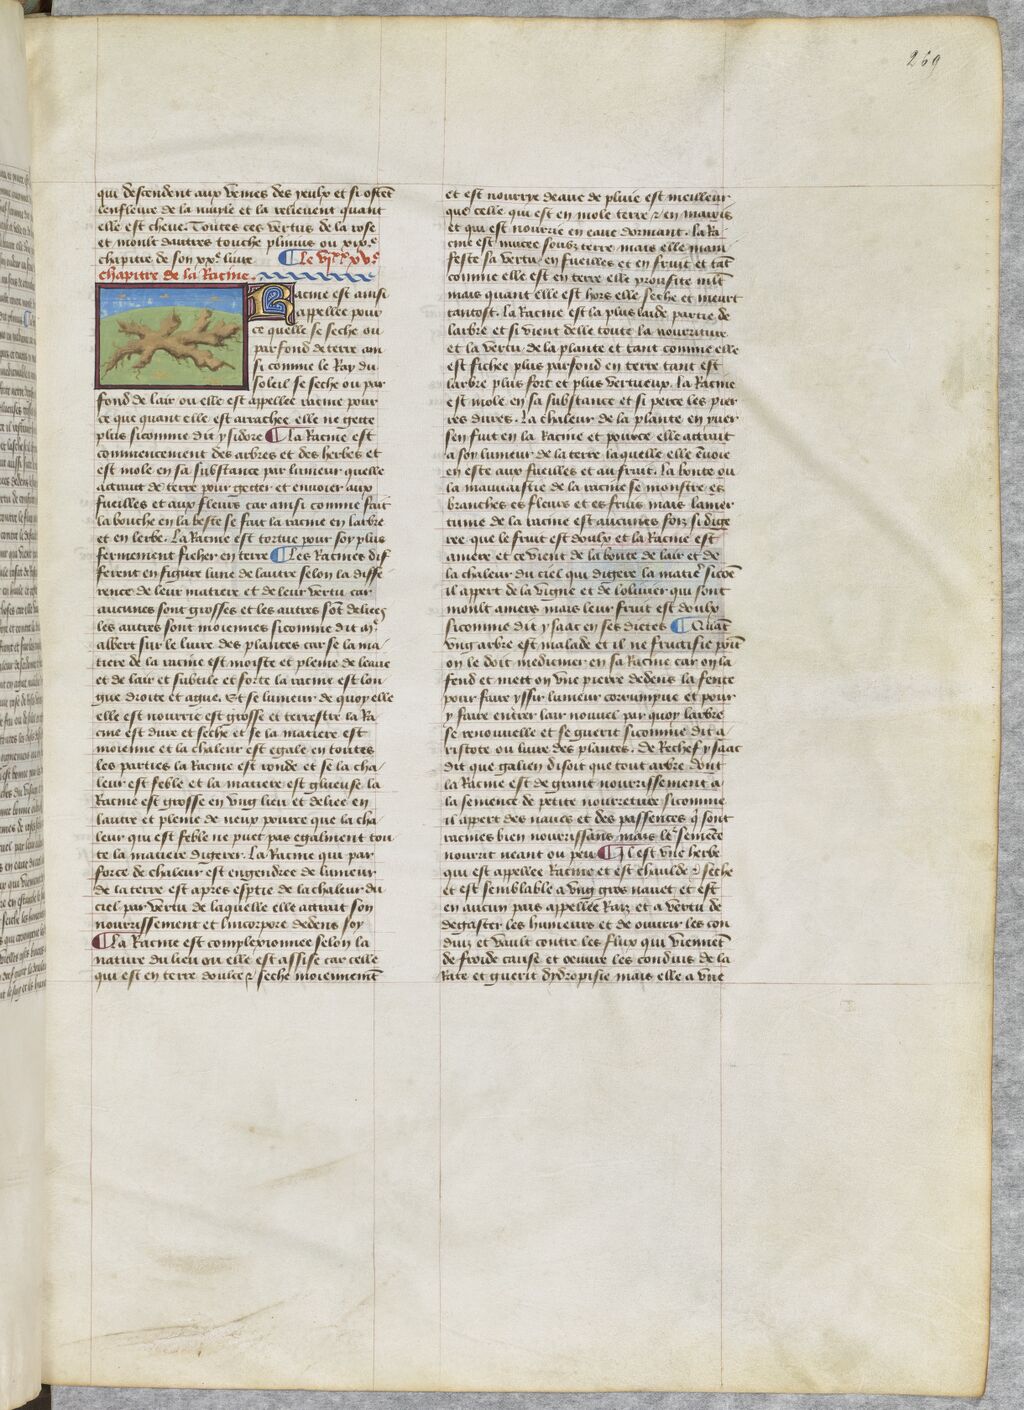 269
qui descendent aux veines des yeulx et si ostent
lenfleure de la nuyle et la relieuent quant
elle est cheue. Toutes ces vertus de la rose
et moult dautres touche plinius ou xixe
chapitre de son xxie liure ¶ Le viii xve
chapitre de la Racine.
Racine est ainsi
appellee pour
ce quelle se seche ou
parfond de terre ain
si comme le Ray du
soleil se seche ou par
fond de lair ou elle est appellee racine pour
ce que quant elle est arrachee elle ne gette
plus sicomme dit ysidore ¶ La Racine est
commencement des arbres et des herbes et
est mole en sa substance par lumeur quelle
attrait de terre pour getter et enuoier aux
fueilles et aux fleurs car ainsi comme fait
la bouche en la beste se fait la racine en larbre
et en lerbe. La Racine est tortue pour soy plus
fermement ficher en terre ¶ Les Racines dif
ferent en figure lune de lautre selon la diffe
rence de leur matiere et de leur vertu car
aucunes sont grosses et les autres sont deliees
les autres sont moiennes sicomme dit me
albert sur le liure des plantes car se la ma
tiere de la racine est moiste et pleine de leaue
et de lair et subtile et forte la racine est lon
gue droite et ague. Et se lumeur de quoy elle
elle est nourrie est grosse et terrestre la Ra
cine est dure et seche et se la matiere est
moienne et la chaleur est egale en toutes
les parties la Racine est ronde et se la cha
leur est feble et la matiere est glueuse la
Racine est grosse en vng lieu et deliee en
lautre et pleine de neux pource que la cha
leur qui est feble ne puet pas egalment tou
te la matiere digerer. La Racine qui par
force de chaleur est engendree de lumeur
de la terre est apres esprise de la chaleur du
ciel par vertu de laquelle elle attrait son
nourrissement et lincorpore dedens soy
¶ La Racine est complexionnee selon la
nature du lieu ou elle est assise car celle
qui est en terre doulce et seche moiennement
et est nourrye deaue de pluie est meilleur
que celle qui est en mole terre et en marois
et qui est nourrie en eaue dormant. La Ra
cine est mucee soubz terre mais elle mani
feste sa vertu en fueilles et en fruit et tant
comme elle est en terre elle proufite mlt
mais quant elle est hors elle seche et meurt
tantost. La Racine est la plus laide partie de
larbre et si vient delle toute la nourriture
et la vertu de la plante et tant comme elle
est fichee plus parfond en terre tant est
larbre plus fort et plus vertueux. La Racine
est mole en sa substance et si perce les pier
res dures. La chaleur de la plante en yuer
sen fuit en la Racine et pource elle attrait
a soy lumeur de la terre laquelle elle enuoie
en este aux fueilles et au fruit. La bonte ou
la mauuaistie de la racine se monstre es
branches es fleurs et es fruis mais lamer
tume de la racine est aucunes foiz si dige
ree que le fruit est doulx et la Racine est
amere et ce vient de la bonte de lair et de
la chaleur du ciel qui digere la matiere sicoe
il appert de la vigne et de loliuier qui sont
moult amers mais leur fruit est doulx
sicomme dit ysaac en ses dietes ¶ Quant
vng arbre est malade et il ne fructifie point
on le doit mediciner en sa Racine car on la
fend et mett on vne pierre dedens la fente
pour faire yssir lumeur corrumpue et pour
y faire entrer lair nouuel par quoy larbre
se renouuelle et se guerit sicomme dit a
ristote ou liure des plantes. De Rechef ysaac
dit que galien disoit que tout arbre dont
la Racine est de grant nourrissement a
la semence de petite nourreture sicomme
il appert des nauez et des passences q sont
racines bien nourrissans mais le semece
nourrit neant ou peu ¶ Il est vne herbe
qui est appellee Racine et est chaulde et seche
et est semblable a vng gros nauet et est
en aucun pais appellee Raiz et a vertu de
degaster les humeurs et de ouurir les con
duiz et vault contre les flux qui viennent
de froide cause et oeuure les conduis de la
Rate et guerit dydropisie mais elle a vne